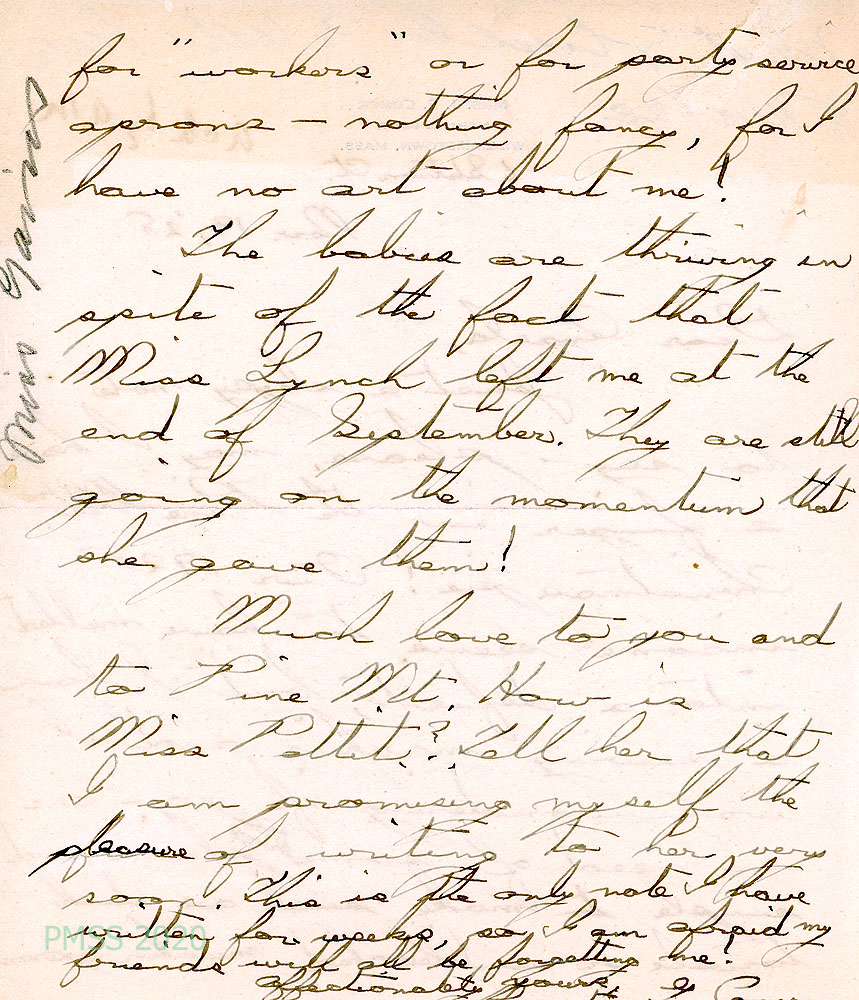 for "workers" or for party service
aprons – nothing fancy, for I
have no art about me!
The babies are thriving in
spite of the fact that
Miss Lynch left me at the
end of September. They are still
going on the momentum that
she gave them!
Much love to you and
to Pine Mt. How is
Miss Pettit? Tell her that
I am promising myself the
pleasure of writing to her very
soon. This is the only note I have
written for weeks, so I am afraid my
friends will all be forgetting me!
Affectionately yours,
Miss Gaines
PMSS 2020